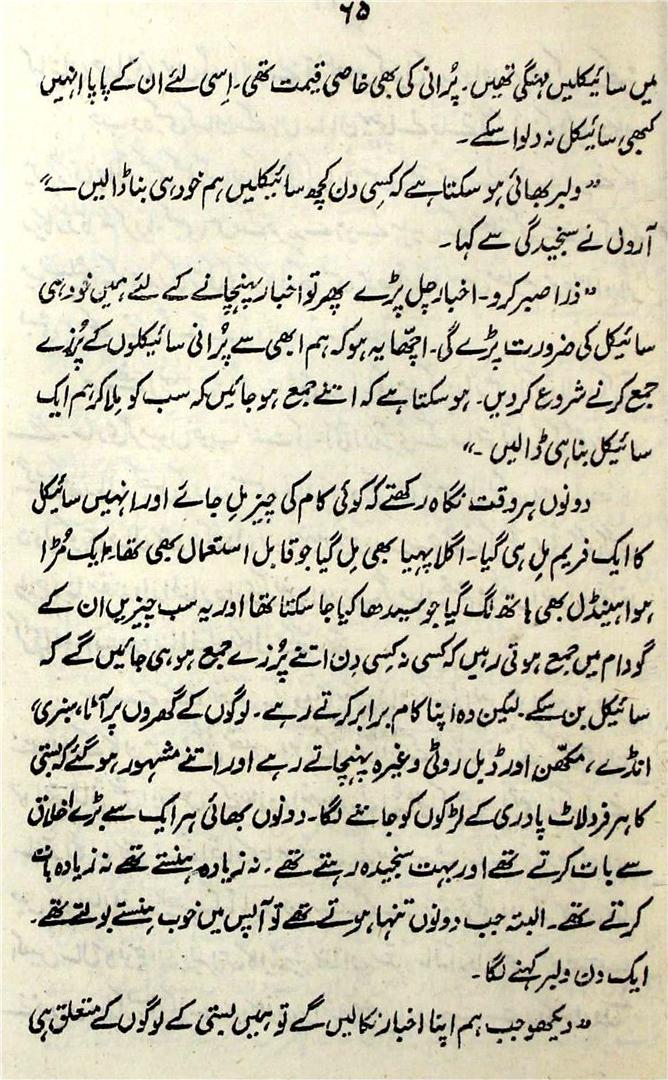 ۶۵
میں سائیکلیں مہنگی تھیں۔ پُرانی کی بھی خاصی قیمت تھی۔ اِسی لئے ان کے پاپا انہیں
کبھی سائیکل نہ دلوا سکے۔
”ولبر بھائی ہو سکتا ہے کہ کِسی دن کچھ سائیکلیں ہم خود ہی بنا ڈالیں۔“
آرول نے سنجیدگی سے کہا۔
”ذرا صبر کرو۔ اخبار چل پڑے پھر تو اخبار پہنچانے کے لئے ہمیں خود ہی
سائیکل کی ضرورت پڑے گی۔ اچھّا یہ ہو کہ ہم ابھی سے پُرانی سائیکلوں کے پُرزے
جمع کرنے شروع کر دیں۔ ہو سکتا ہے کہ اتنے جمع ہو جائیں کہ سب کو مِلا کر ہم ایک
سائیکل بنا ہی ڈالیں۔“
دونوں ہر وقت نگاہ رکھتے کہ کوئی کام کی چیز مِل جائے اور انہیں سائیکل
کا ایک فریم مِل ہی گیا۔ اگلا پہیا بھی مِل گیا جو قابل استعمال بھی تھا۔ ایک مُڑا
ہوا ہینڈل بھی ہاتھ لگ گیا جو سیدھا کیا جا سکتا تھا اور یہ سب چیزیں ان کے
گودام میں جمع ہوتی رہیں کہ کسی نہ کِسی دِن اتنے پُرزے جمع ہو ہی جائیں گے کہ
سائیکل بن سکے۔ لیکن وہ اپنا کام برابر کرتے رہے۔ لوگوں کے گھروں پر آٹا، سبزی،
انڈے، مکھّن اور ڈبل روٹی وغیرہ پہنچاتے رہے اور اتنے مشہور ہو گئے کہ بستی
کا ہر فرد لاٹ پادری کے لڑکوں کو جاننے لگا۔ دونوں بھائی ہر ایک سے بڑے اخلاق
سے بات کرتے تھے اور بہت سنجیدہ رہتے تھے۔ نہ زیادہ ہنستے تھے نہ زیادہ بات
کرتے تھے۔ البتہ جب دونوں تنہا ہوتے تھے تو آپس میں خوب ہنستے بولتے تھے۔
ایک دن ولبر کہنے لگا۔
”دیکھو جب ہم اپنا اخبار نکالیں گے تو ہمیں بستی کے لوگوں کے متعلق ہی